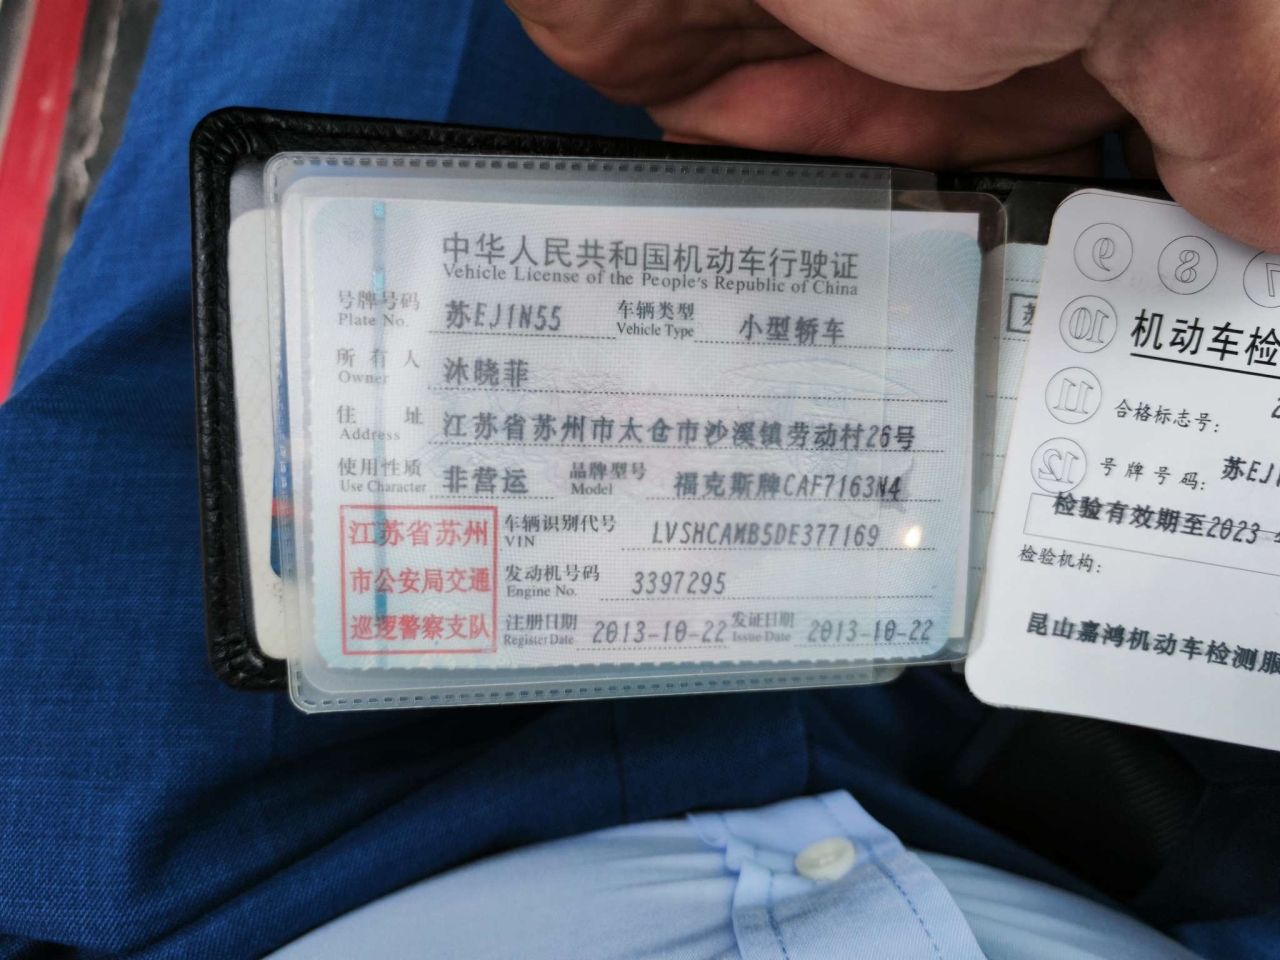 中华人民共和国机动车行驶证
Vehicle License of the People's Republic of China
号牌号码 苏EJ1N55 车辆类型 小型轿车
Plate No. Vehicle Type
所有人 沐晓菲
Owner
住址 江苏省苏州市太仓市沙溪镇劳动村26号
Address
使用性质 非营运 品牌型号 福克斯牌CAF7163N4
Use Character Model
江苏省苏州
市公安局交通
巡逻警察支队
车辆识别代号 LVSHCAMB5DE377169
VIN
发动机号码 3397295
Engine No.
注册日期 2013-10-22 发证日期 2013-10-22
Register Date Issue Date
苏
9 8 7
10
11
12
机动车检
合格标志号: 2
号牌号码: 苏EJ1
检验有效期至2023
检验机构:
昆山嘉鸿机动车检测服